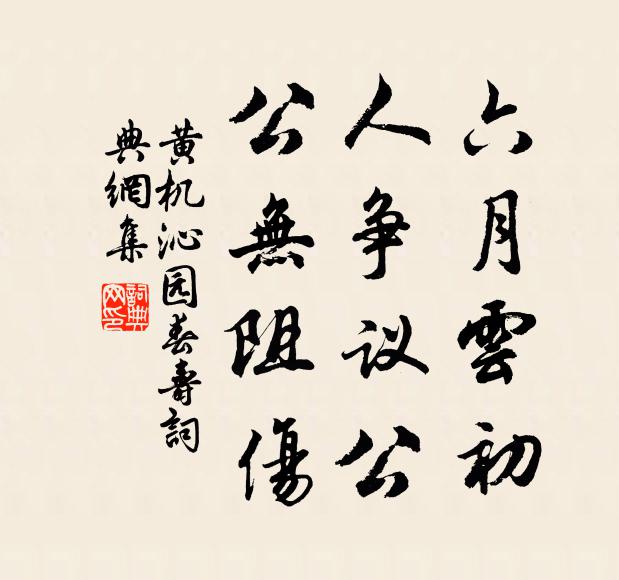 六月雲初
人争议公
公無阻傷
黄机沁园春寿詞
典網集
詞典网印